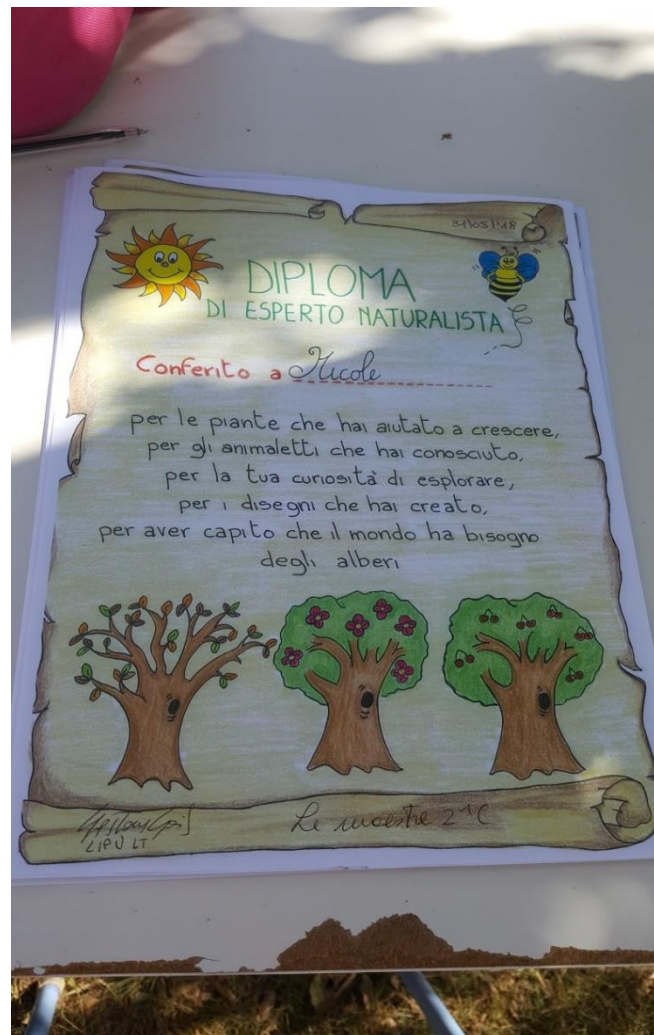 31/05/'18
DIPLOMA
DI ESPERTO NATURALISTA
Conferito a Nicole
per le piante che hai aiutato a crescere,
per gli animaletti che hai conosciuto,
per la tua curiosità di esplorare,
per i disegni che hai creato,
per aver capito che il mondo ha bisogno
degli alberi
LIPU LT
Le maestre 2^C